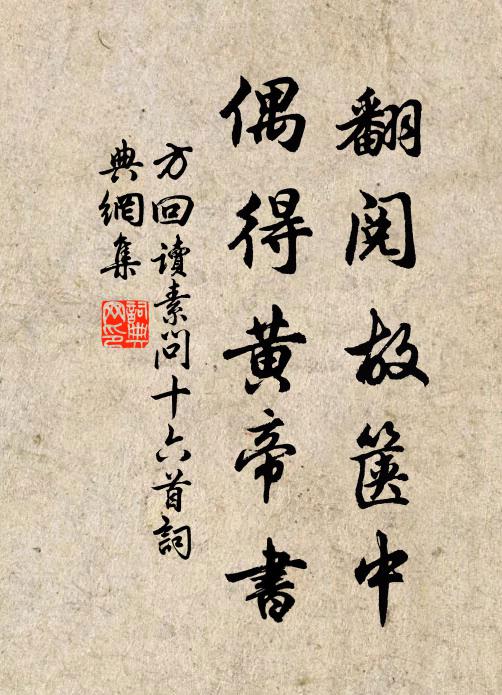 翻閱故篋中
偶得黃帝書
方回讀素問十六首詞
典網集
詞典
网印